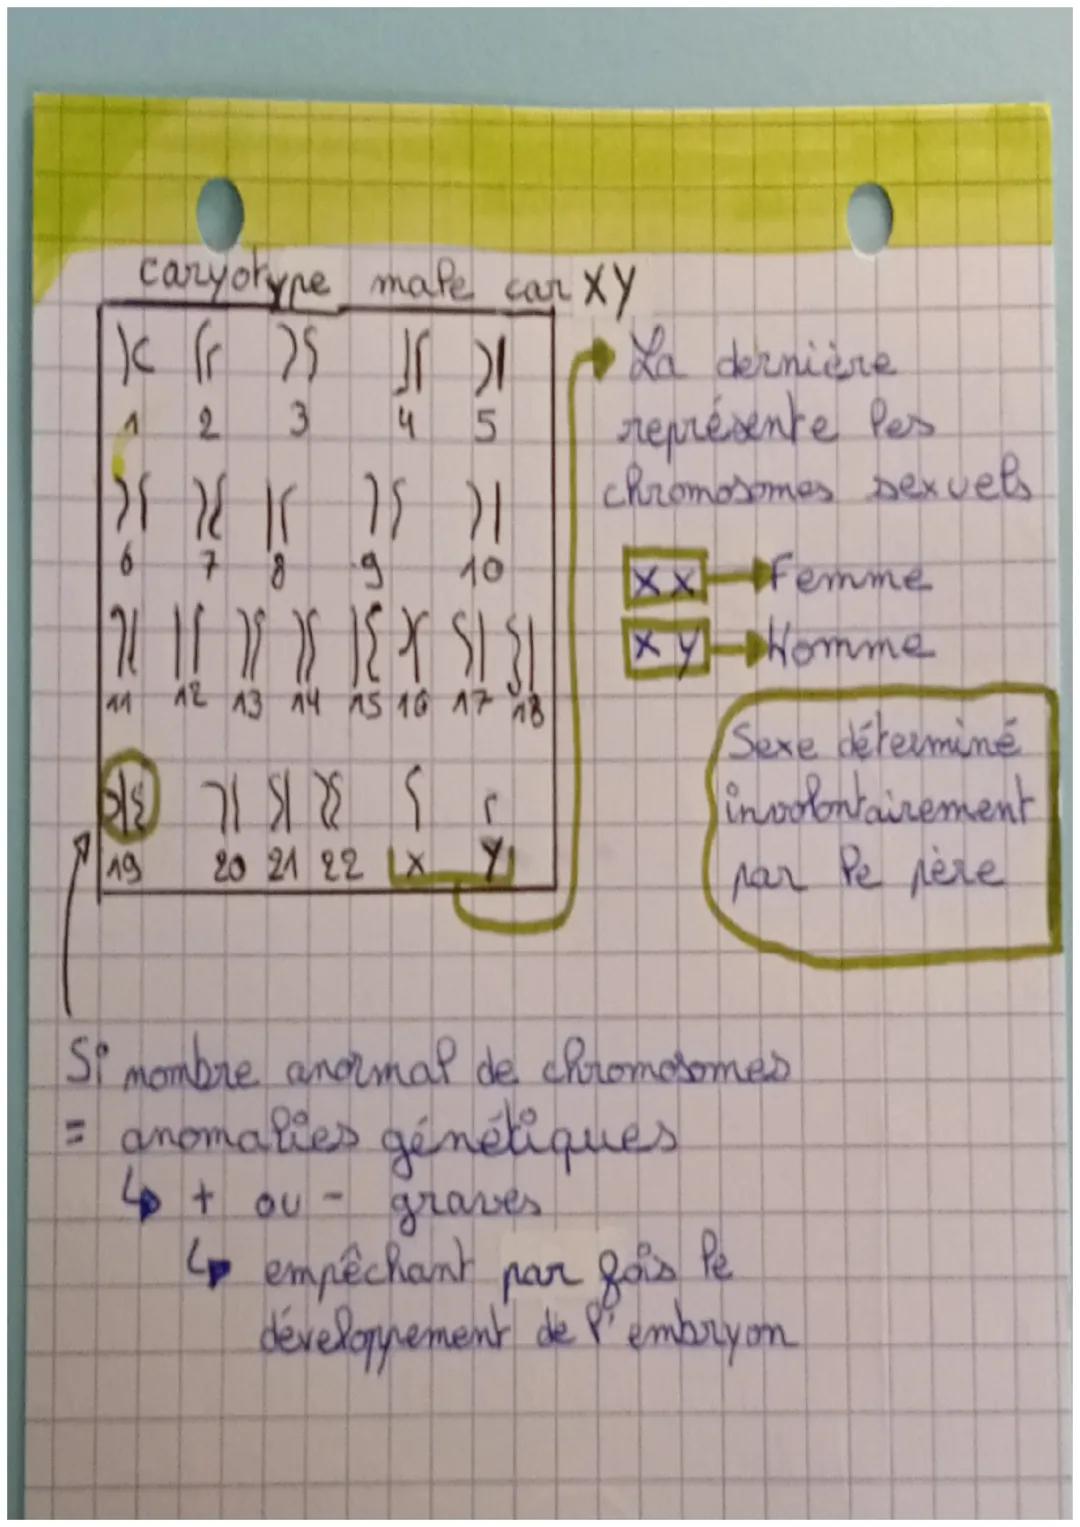 caryotype male car XY
1 2 3 4 5
6 7 8 9 10
11 12 13 14 15 16 17 18
19 20 21 22 X Y
La dernière
représente les
chromosomes sexuels
XX Femme
XY Homme
Sexe déterminé
involontairement
par le père
Si nombre anormal de chromosomes
= anomalies génétiques
↳ + ou - graves
↳ empêchant par fois le
développement de l'embryon